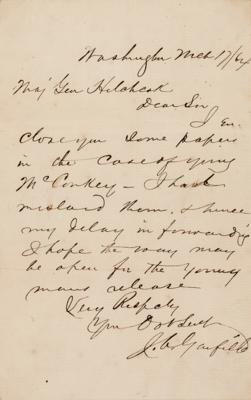 Washington Mch 17/64
Maj Gen Hitchcock
Dear Sir
I En-
close you some papers
in the case of young
McConkey – I had
mislaid them, & hence
my delay in forwarding
I hope the way may
be open for the young
mans release
Very Respcly
Your Obt Servt
J. A. Garfield